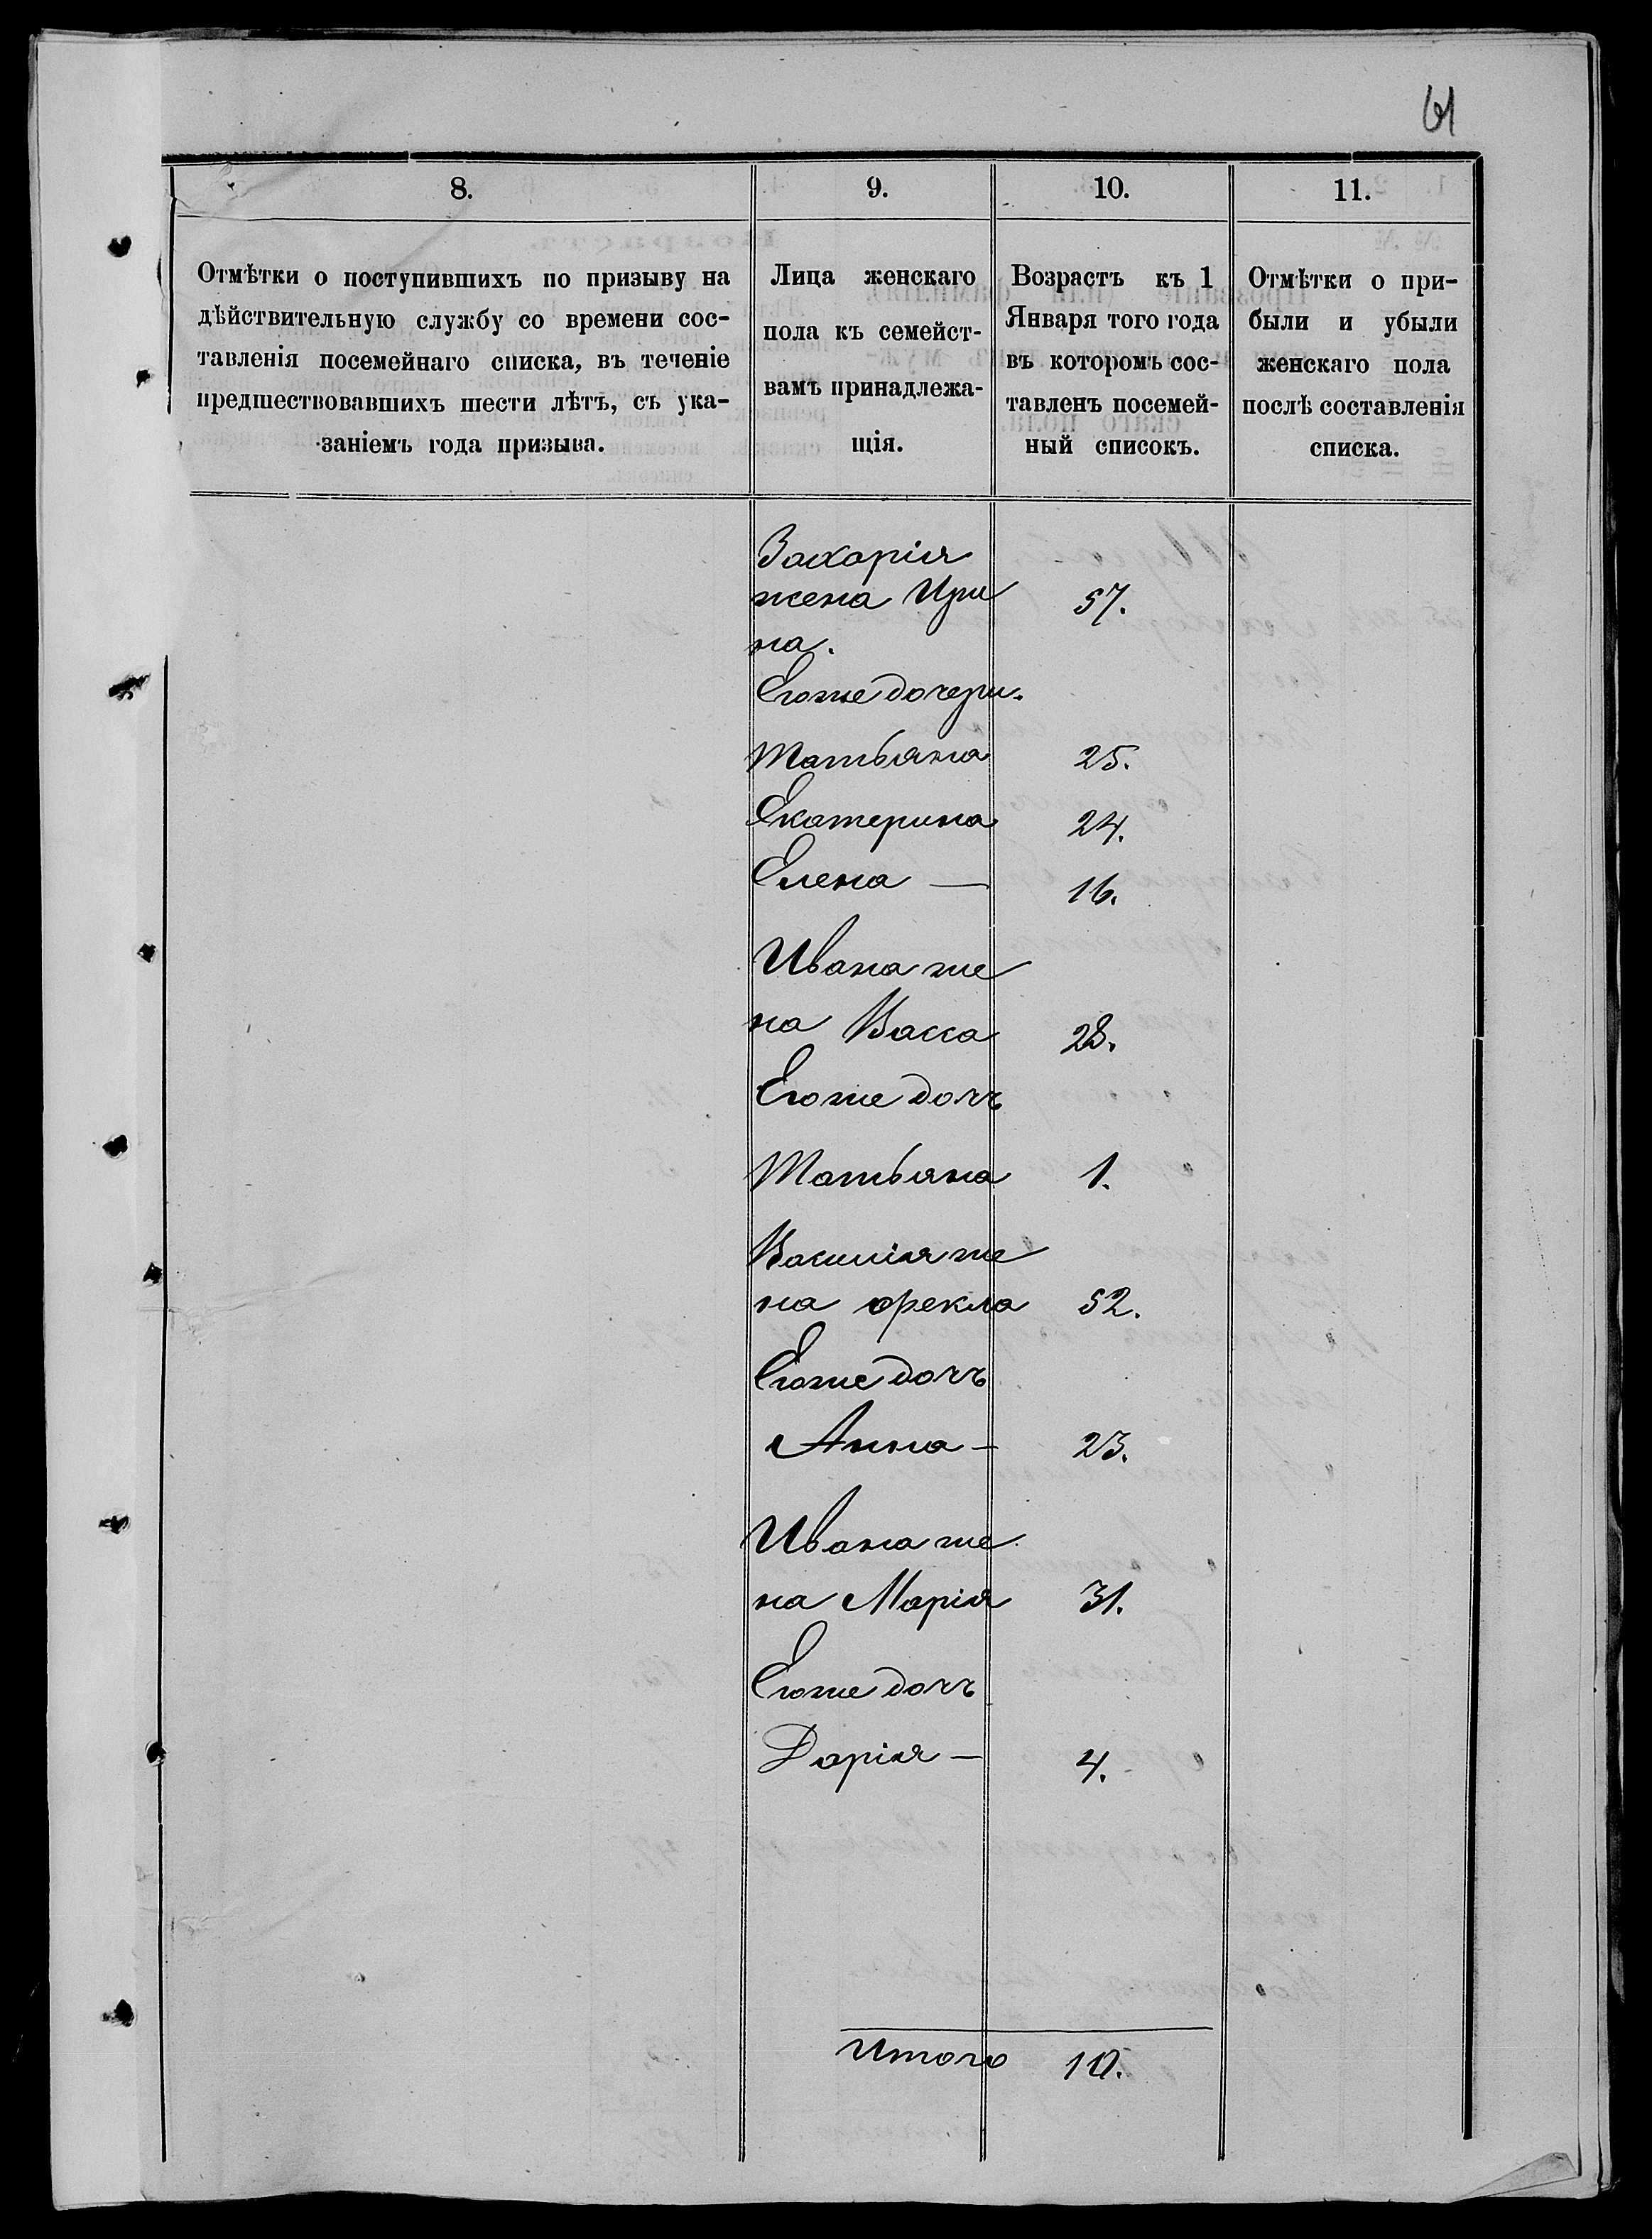 61
8.
9.
10.
11.
Отмѣтки о поступившихъ по призыву на
дѣйствительную службу со времени сос-
тавленія посемейнаго списка, въ теченіе
предшествовавшихъ шести лѣтъ, съ ука-
заніемъ года призыва.
Лица женскаго
пола къ семейст-
вамъ принадлежа-
щія.
Возрастъ къ 1
Января того года
въ которомъ сос-
тавленъ посемей-
ный списокъ.
Отмѣтки о при-
были и убыли
женскаго пола
послѣ составленія
списка.
Захарія
жена Ири 57.
на.
Егоже дочери.
Татьяна 25.
Екатерина 24.
Елена — 16.
Ивана же
на Васса 28.
Егоже дочь
Татьяна 1.
Василія же
на Ѳекла 52.
Егоже дочь
Анна - 23.
Ивана же
на Марія 31.
Егоже дочь
Дарія — 4.
Итого 10.